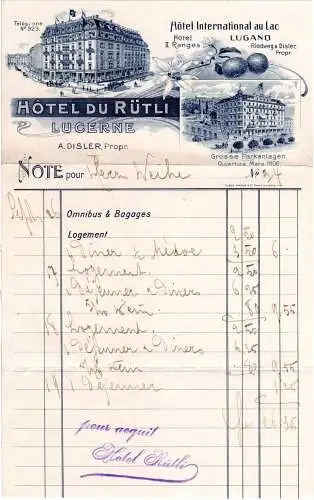 Téléphone
No 323.
Hôtel International au Lac
Hôtel
II Ranges
LUGANO
Riedweg & Disler,
Propr.
HÔTEL DU RÜTLI
LUCERNE
A. DISLER, Propr.
Grosse Parkanlagen
Ouverture Mars 1906.
NOTE pour Herrn No 34
26 Omnibus & Bagages
Logement 2 50
1 Diner & Médoc 3 50 6
17 Logement 2 50
1 Déjeuner & Diners 6 25
5/10 80 9 55
18 Logement 2 50
1 Déjeuner & Diners 6 25
5/10 80 9 55
19 1 Déjeuner 1 25
26 35
pour acquit
Hotel Rütli